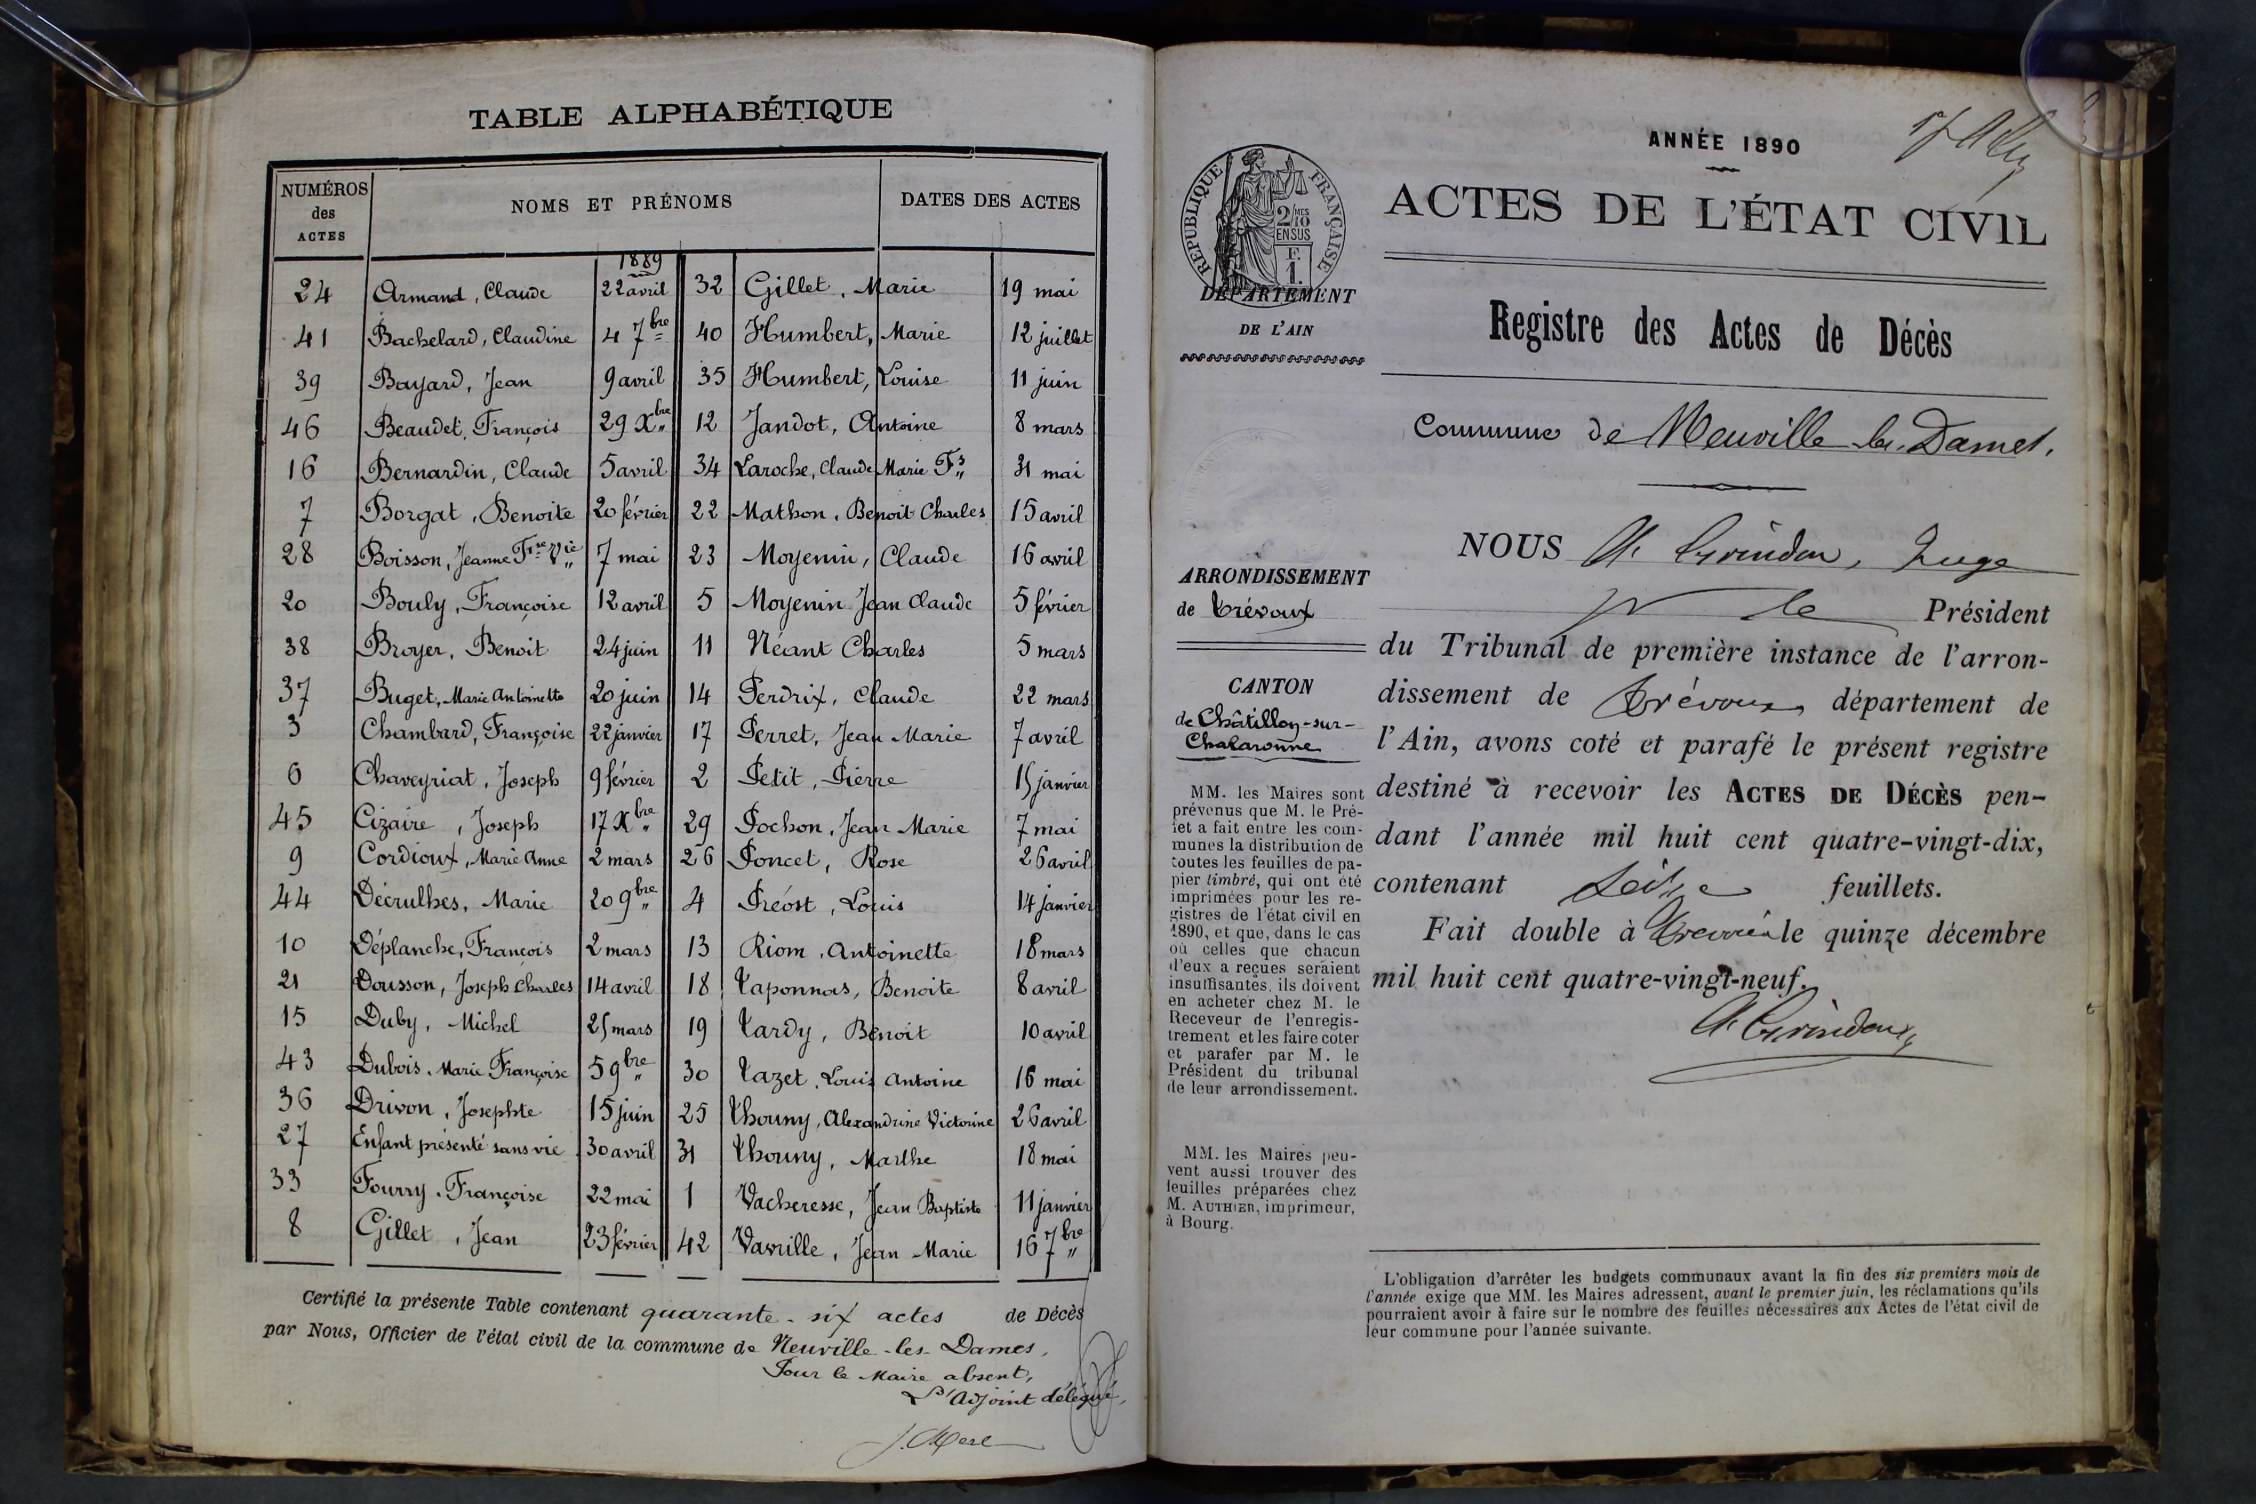 TABLE ALPHABÉTIQUE
NUMÉROS des ACTES
NOMS ET PRÉNOMS
DATES DES ACTES
1889
24 Armand, Claude 22 avril
41 Bachelard, Claudine 4 7bre
39 Bayard, Jean 9 avril
46 Beaudet, François 29 Xbre
16 Bernardin, Claude 5 avril
7 Borgat, Benoite 20 février
28 Boisson, Jeanne Fse Vie 7 mai
20 Bouly, Françoise 12 avril
38 Broyer, Benoit 24 juin
37 Buget, Marie Antoinette 20 juin
3 Chambard, Françoise 22 janvier
6 Chaveyriat, Joseph 9 février
45 Cizaire, Joseph 17 Xbre
9 Cordioux, Marie Anne 2 mars
44 Décrulhes, Marie 20 9bre
10 Déplanche, François 2 mars
21 Dousson, Joseph Charles 14 avril
15 Duby, Michel 25 mars
43 Dubois, Marie Françoise 5 9bre
36 Drivon, Josephte 15 juin
27 Enfant présenté sans vie 30 avril
33 Fourry, Françoise 22 mai
8 Gillet, Jean 23 février
32 Gillet, Marie 19 mai
40 Humbert, Marie 12 juillet
35 Humbert, Louise 11 juin
12 Jandot, Antoine 8 mars
34 Laroche, Claude Marie Fs 31 mai
22 Mathon, Benoit Charles 15 avril
23 Moyenin, Claude 16 avril
5 Moyenin Jean Claude 5 février
11 Néant Charles 5 mars
14 Perdrix, Claude 22 mars
17 Perret, Jean Marie 7 avril
2 Petit, Pierre 15 janvier
29 Pochon, Jean Marie 7 mai
26 Poncet, Rose 26 avril
4 Préost, Louis 14 janvier
13 Riom, Antoinette 18 mars
18 Taponnas, Benoite 8 avril
19 Tardy, Benoit 10 avril
30 Tazet, Louis Antoine 16 mai
25 Thouny, Alexandrine Victorine 26 avril
31 Thouny, Marthe 18 mai
1 Vacheresse, Jean Baptiste 11 janvier
42 Vavrille, Jean Marie 16 7bre
Certifié la présente Table contenant quarante-six actes de Décès
par Nous, Officier de l'état civil de la commune de Neuville-les-Dames,
Pour le Maire absent,
L'adjoint délégué,
ANNÉE 1890
RÉPUBLIQUE FRANÇAISE
2/10MES
EN SUS
F.
1.
ACTES DE L'ÉTAT CIVIL
DÉPARTEMENT
DE L'AIN
Registre des Actes de Décès
Commune de Neuville les Dames.
ARRONDISSEMENT
de Trévoux
CANTON
de Châtillon-sur-
Chalaronne
MM. les Maires sont
prévenus que M. le Pré-
fet a fait entre les com-
munes la distribution de
toutes les feuilles de pa-
pier timbré, qui ont été
imprimées pour les re-
gistres de l'état civil en
1890, et que, dans le cas
où celles que chacun
d'eux a reçues seraient
insuffisantes, ils doivent
en acheter chez M. le
Receveur de l'enregis-
trement et les faire coter
et parafer par M. le
Président du tribunal
de leur arrondissement.
MM. les Maires peu-
vent aussi trouver des
feuilles préparées chez
M. AUTHIER, imprimeur,
à Bourg.
NOUS Juge
le Président
du Tribunal de première instance de l'arron-
dissement de Trévoux, département de
l'Ain, avons coté et parafé le présent registre
destiné à recevoir les ACTES DE DÉCÈS pen-
dant l'année mil huit cent quatre-vingt-dix,
contenant seize feuillets.
Fait double à Trévoux le quinze décembre
mil huit cent quatre-vingt-neuf.
L'obligation d'arrêter les budgets communaux avant la fin des six premiers mois de
l'année exige que MM. les Maires adressent, avant le premier juin, les réclamations qu'ils
pourraient avoir à faire sur le nombre des feuilles nécessaires aux Actes de l'état civil de
leur commune pour l'année suivante.